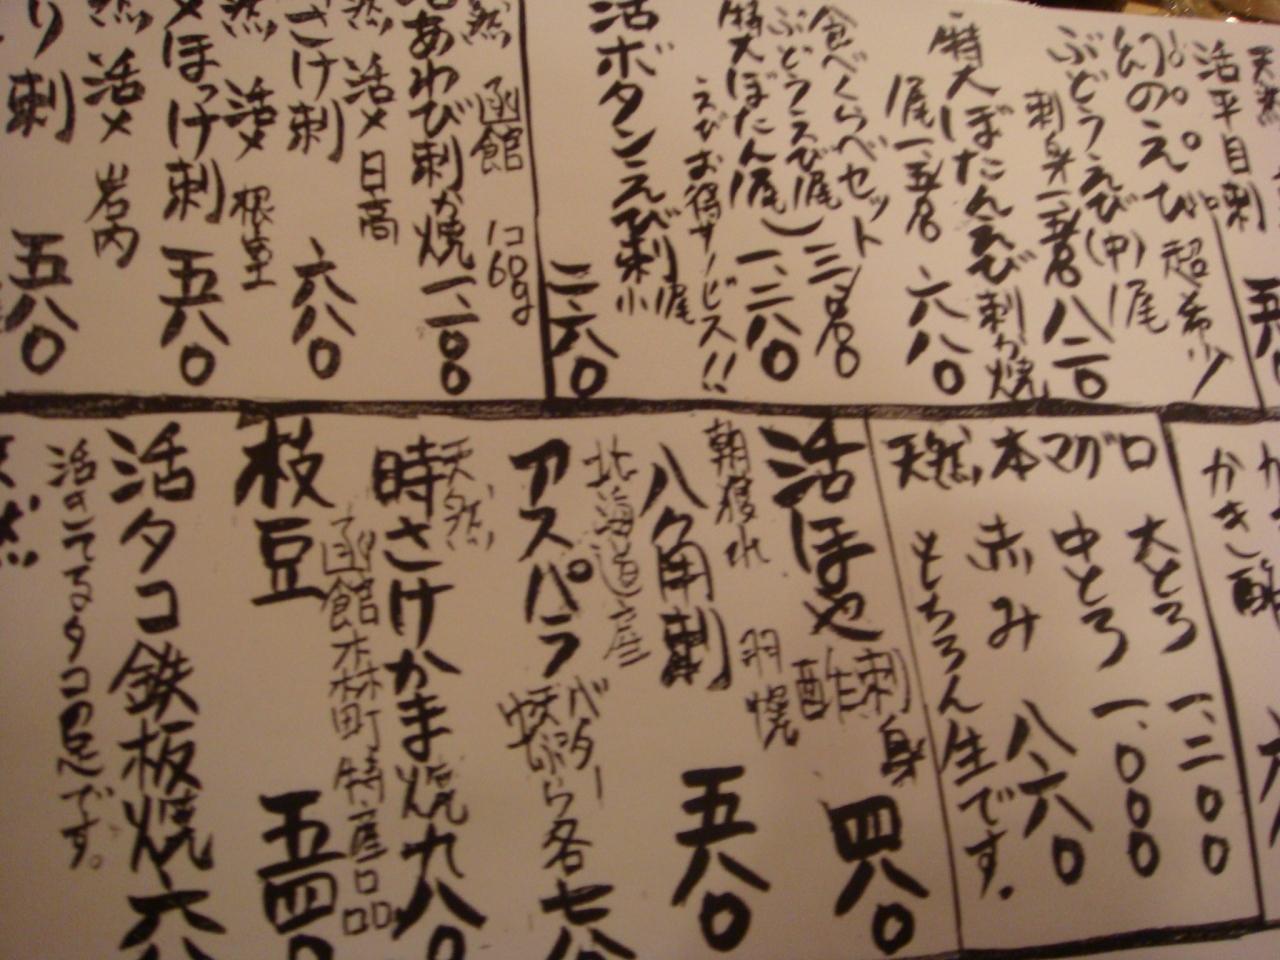 天然
活平目刺
幻のえび 超希少
ぶどうえび(中)1尾
刺身 八二〇
特大ぼたんえび 刺か焼
1尾 六八〇
食べくらべセット
ぶどうえび1尾
特大ぼたん1尾
一、二八〇
えびお得サービス!!
活ボタンえび刺
小 尾
二、六八〇
函館 1コ60g
活あわび刺か焼 一、二〇〇
活〆 日高
さけ刺 六八〇
活〆 根室
ほっけ刺 五八〇
活〆 岩内
り刺 五八〇
かき酢
天然 本マグロ
大とろ 一、二〇〇
中とろ 一、〇〇〇
赤み 八六〇
もちろん生です。
活ほや 刺身 酢 四八〇
朝獲れ 羽幌
八角刺 五八〇
北海道産
アスパラ バター 天ぷら各 七八
天然
時さけかま焼 九八〇
函館木林町特産品
枝豆 五四〇
活タコ鉄板焼 六八
タコの足です。